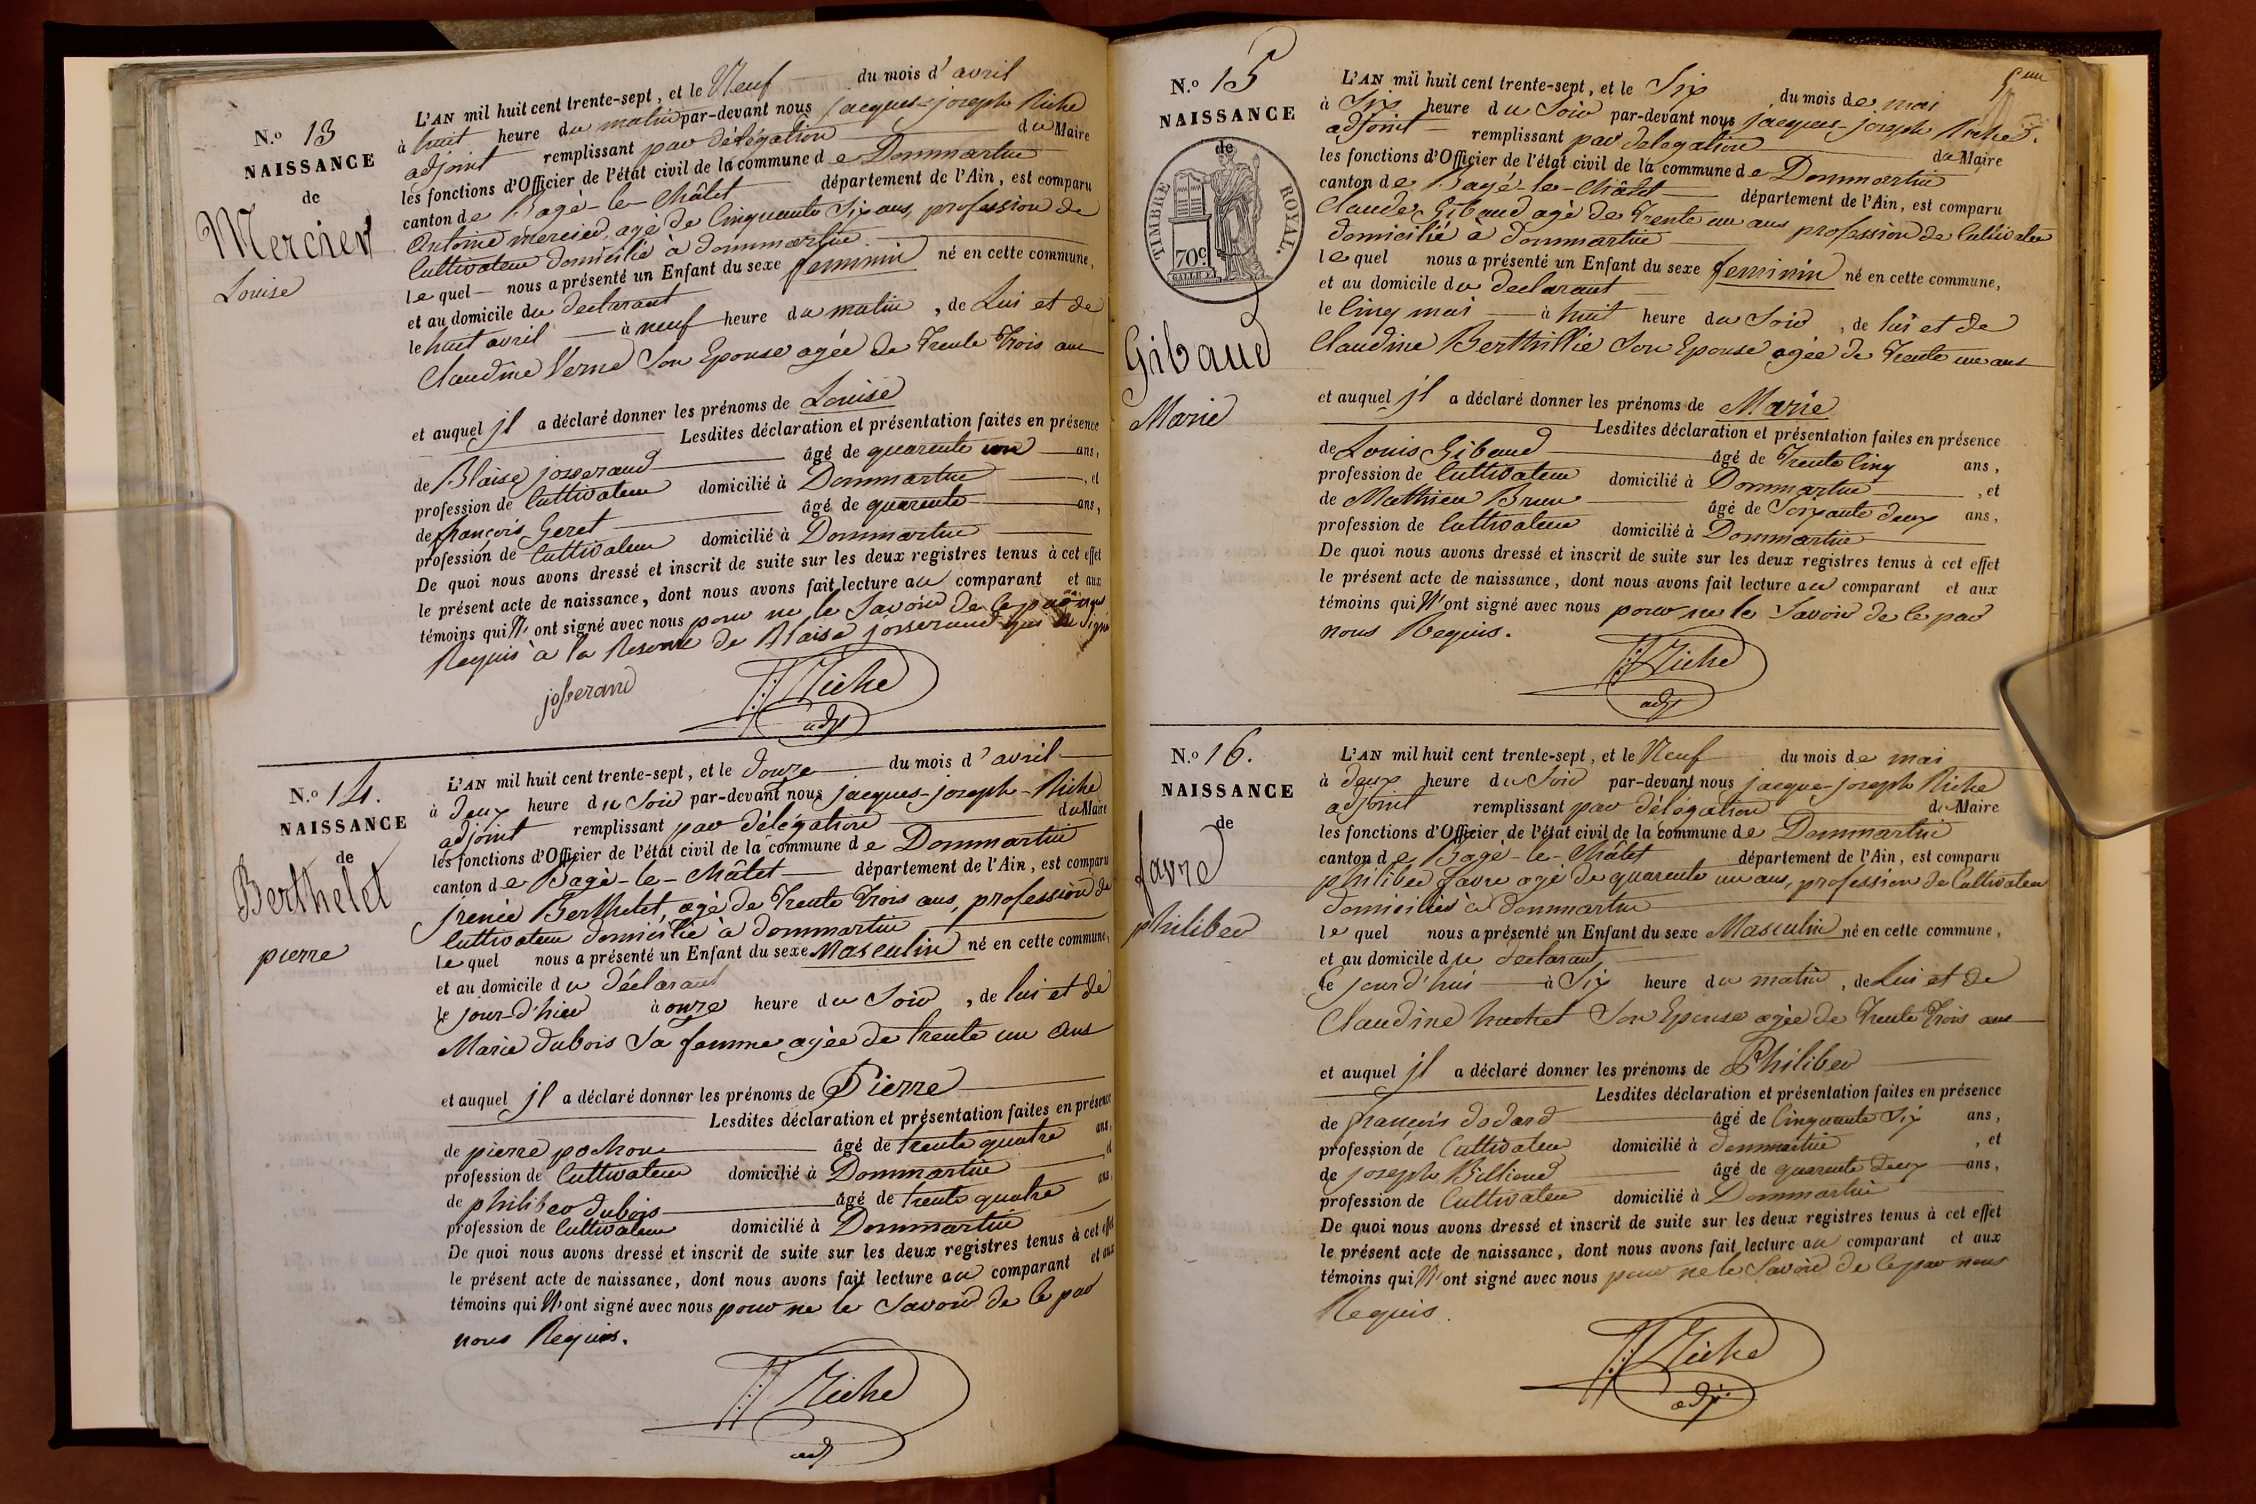 N.o 13
NAISSANCE
de
Mercier
Louise
L'AN mil huit cent trente-sept, et le Neuf du mois d'avril
à huit heure du matin par-devant nous jacques-joseph Riche
adjoint remplissant par délégation du Maire
les fonctions d'Officier de l'état civil de la commune de Dommartin
canton de Bagé-le-Châtel département de l'Ain, est comparu
Antoine mercier, agé de Cinquante Six ans, profession de
Cultivateur domicilié à dommartin
lequel nous a présenté un Enfant du sexe feminin né en cette commune,
et au domicile du declarant
le huit avril à neuf heure du matin, de Lui et de
Claudine Verne Son Epouse agée de Trente Trois ans
et auquel jl a déclaré donner les prénoms de Louise
Lesdites déclaration et présentation faites en présence
de Blaise josserand âgé de quarente un ans,
profession de Cultivateur domicilié à Dommartin, et
de françois Geret âgé de quarente ans,
profession de Cultivateur domicilié à Dommartin
De quoi nous avons dressé et inscrit de suite sur les deux registres tenus à cet effet
le présent acte de naissance, dont nous avons fait lecture au comparant et aux
témoins qui N'ont signé avec nous pour ne le Savoir de Ce par nous
Requis à la Reserve de Blaise josserand qui a Signé
josserand
JJ Riche
adjt
N.o 14.
NAISSANCE
de
Berthelet
pierre
L'AN mil huit cent trente-sept, et le douze du mois d'avril
à deux heure du Soir par-devant nous jacques-joseph-Riche
adjoint remplissant par délégation du Maire
les fonctions d'Officier de l'état civil de la commune de Dommartin
canton de Bagé-le-Châtel département de l'Ain, est comparu
jrenée Berthelet, agé de Trente Trois ans, profession de
Cultivateur domicilié à dommartin
lequel nous a présenté un Enfant du sexe Masculin né en cette commune,
et au domicile du déclarant
le jour-d'hier à onze heure du Soir, de lui et de
Marie dubois Sa femme agée de trente un ans
et auquel jl a déclaré donner les prénoms de Pierre
Lesdites déclaration et présentation faites en présence
de pierre pochon âgé de trente quatre ans,
profession de Cultivateur domicilié à Dommartin, et
de philiber dubois âgé de trente quatre ans,
profession de Cultivateur domicilié à Dommartin
De quoi nous avons dressé et inscrit de suite sur les deux registres tenus à cet effet
le présent acte de naissance, dont nous avons fait lecture au comparant et aux
témoins qui N'ont signé avec nous pour ne le Savoir de Ce par
nous Requis.
JJ Riche
adj
5me
N.o 15
NAISSANCE
de
TIMBRE ROYAL.
70c
Gibaud
Marie
L'AN mil huit cent trente-sept, et le Six du mois de mai
à Six heure du Soir par-devant nous jacques-joseph Riche
adjoint remplissant par délégation du Maire
les fonctions d'Officier de l'état civil de la commune de Dommartin
canton de Bagé-le-Châtel département de l'Ain, est comparu
Claude Gibaud agé de Trente un ans profession de Cultivateur
domicilié à dommartin
lequel nous a présenté un Enfant du sexe feminin né en cette commune,
et au domicile du declarant
le Cinq mai à huit heure du Soir, de lui et de
Claudine Berthillié Son Epouse agée de Trente un ans
et auquel jl a déclaré donner les prénoms de Marie
Lesdites déclaration et présentation faites en présence
de Louis Gibaud âgé de Trente Cinq ans,
profession de Cultivateur domicilié à Dommartin, et
de Mathieu Brun âgé de Soixante deux ans,
profession de Cultivateur domicilié à Dommartin
De quoi nous avons dressé et inscrit de suite sur les deux registres tenus à cet effet
le présent acte de naissance, dont nous avons fait lecture au comparant et aux
témoins qui N'ont signé avec nous pour ne le Savoir de Ce par
nous Requis.
JJ Riche
adjt
N.o 16.
NAISSANCE
de
favre
philiber
L'AN mil huit cent trente-sept, et le Neuf du mois de mai
à deux heure du Soir par-devant nous jacque-joseph Riche
adjoint remplissant par délégation du Maire
les fonctions d'Officier de l'état civil de la commune de Dommartin
canton de Bagé-le-Châtel département de l'Ain, est comparu
philiber favre agé de quarente un ans, profession de Cultivateur
domicilié à dommartin
lequel nous a présenté un Enfant du sexe Masculin né en cette commune,
et au domicile du declarant
le jourd'hui à Six heure du matin, de Lui et de
Claudine Son Epouse agée de Trente Trois ans
et auquel jl a déclaré donner les prénoms de Philiber
Lesdites déclaration et présentation faites en présence
de françois dodard âgé de Cinquante Six ans,
profession de Cultivateur domicilié à dommartin, et
de joseph Billioud âgé de quarente deux ans,
profession de Cultivateur domicilié à Dommartin
De quoi nous avons dressé et inscrit de suite sur les deux registres tenus à cet effet
le présent acte de naissance, dont nous avons fait lecture au comparant et aux
témoins qui N'ont signé avec nous pour ne le Savoir de Ce par nous
Requis.
JJ Riche
adjt